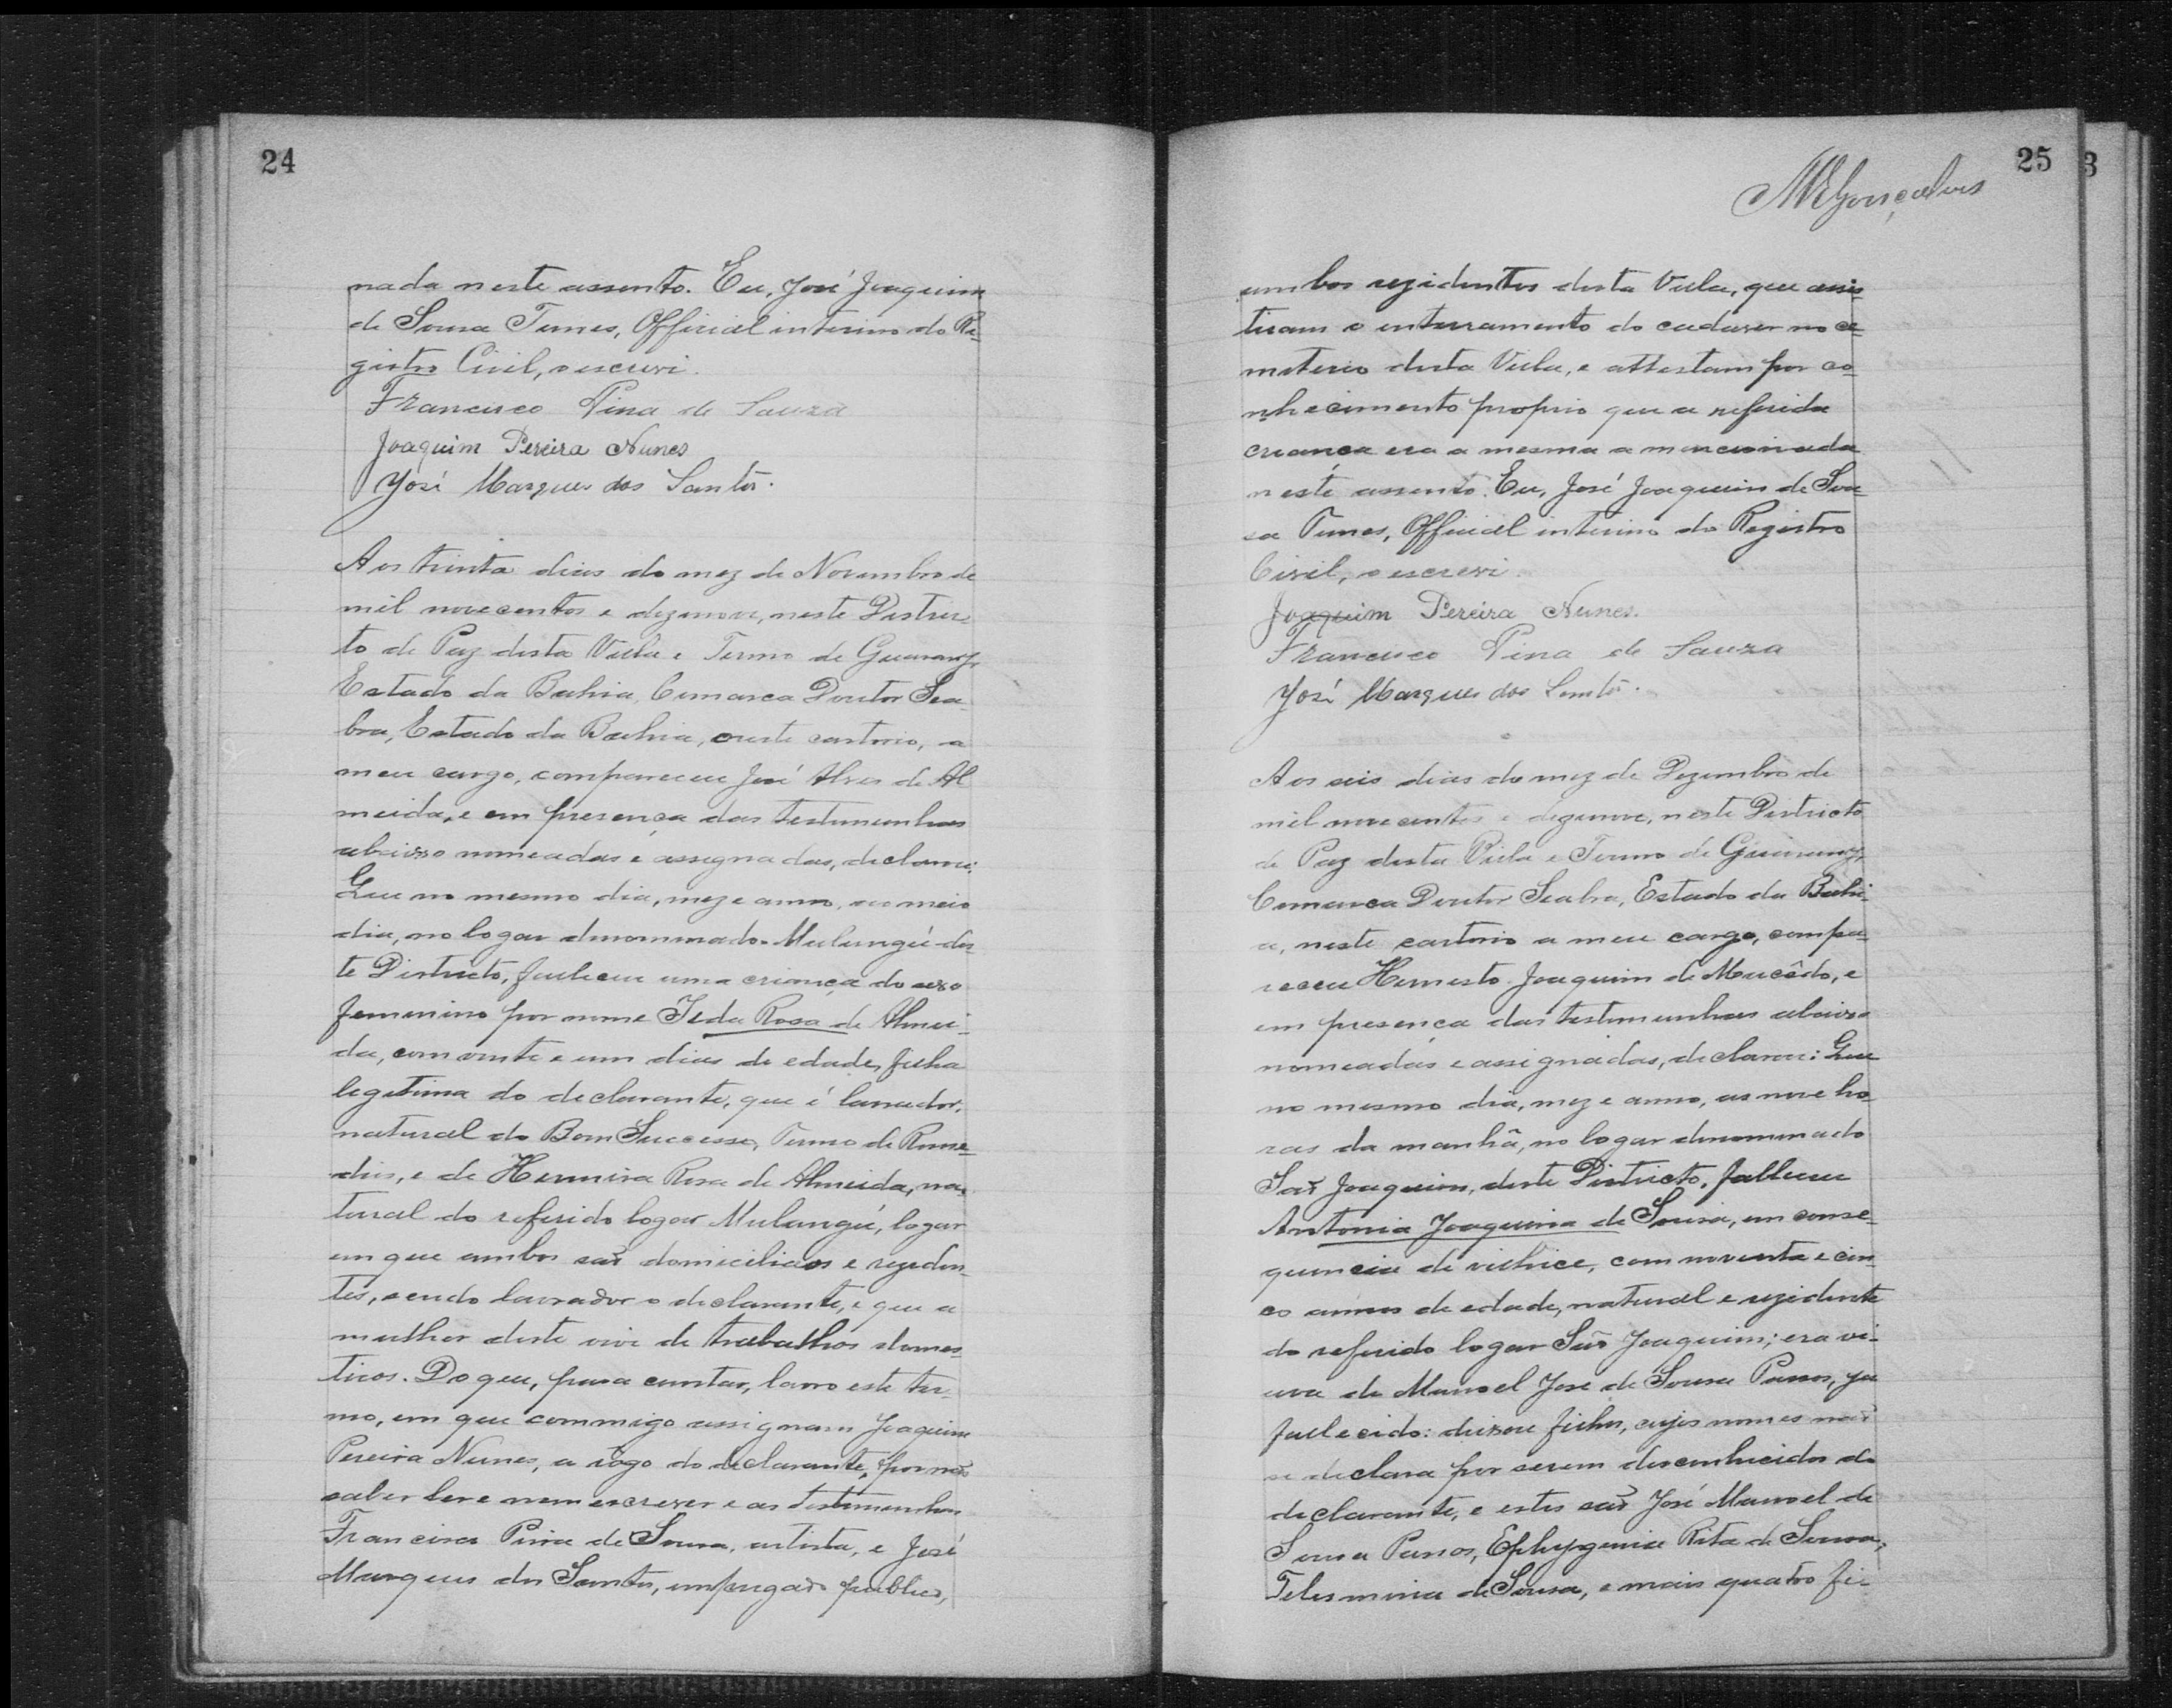 24
nada neste assento. Eu, José Joaquim
de Sousa Tunes, Official interino do Re-
gistro Civil, o escrevi.
Francisco Pina de Sauza
Joaquim Pereira Nunes
José Marques dos Santos.
Aos trinta dias do mez de Novembro de
mil novecentos e dezenove, neste Distric-
to de Paz desta Villa e Termo de Guarany,
Estado da Bahia, Comarca Doutor Sea-
bra, Estado da Bahia, neste cartorio, a
meu cargo, compareceu José Alves de Al
meida, e em presença das testemunhas
abaixo nomeadas e assignadas, declarou:
Que no mesmo dia, mez e anno, ao meio
dia, no logar denominado Mulungú des-
te Districto, falleceu uma criança do sexo
femenino por nome Ieda Rosa de Almei-
da, com vinte e um dias de edade, filha
legitima do declarante, que é lavrador,
natural do Bom Successo, Termo de Reme-
dios, e de Hermira Rosa de Almeida, na-
tural do referido logar Mulungú, logar
em que ambos saõ domiciliaos e residen-
tes, sendo lavrador o declarante, e que a
mulher deste vive de trabalhos domes-
ticos. Do que, para constar, lavro este ter-
mo, em que commigo assignam Joaquim
Pereira Nunes, a rôgo do declarante, por naõ
saber ler e nem escrever e as testemunhas
Francisco Pina de Sousa, artista, e José
Marques dos Santos, empregado publico,
25
3
MRGonçalves
ambos rezidentes desta Villa, que assis
tiram o enterramento do cadaver no ce-
miterio desta Villa, e attestam por co-
nhecimento proprio que a referida
criança era a mesma a mencionada
neste assento. Eu, José Joaquim de Sou-
sa Tunes, Official interino do Registro
Civil, o escrevi.
Joaquim Pereira Nunes.
Francisco Pina de Sauza
José Marques dos Santos.
Aos seis dias do mez de Dezembro de
mil novecentos e dezenove, neste Districto
de Paz desta Villa e Termo de Guarany,
Comarca Doutor Seabra, Estado da Bahi-
a, neste cartorio a meu cargo, compa-
receu Hernesto Joaquim de Macêdo, e
em presença das testemunhas abaixo
nomeadas e assignadas, declarou: Que
no mesmo dia, mez e anno, as nove ho-
ras da manhã, no logar denominado
Saõ Joaquim, deste Districto, falleceu
Antonia Joaquina de Sousa, em conse-
quencia de velhice, com noventa e cin-
co annos de edade, natural e rezidente
do referido logar Saõ Joaquim; era vi-
uva de Manoel José de Sousa Passos, ja
fallecido: deixou filhos, cujos nomes naõ
se declara por serem desconhecidos do
declarante, e estes saõ José Manoel de
Sousa Passos, Ephygenia Rita de Sousa,
Telesmina de Sousa, e mais quatro fi-